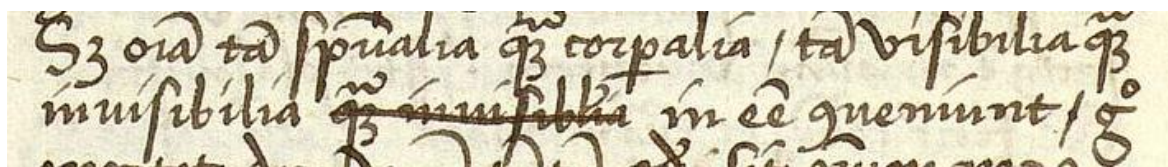 Sꝫ oı̃a tã spũalia qͣꝫ corꝑalia / tã visibilia qͣꝫ
inuisibilia qͣꝫ inuisiblia in eẽ ꝯueniunt / gͦ